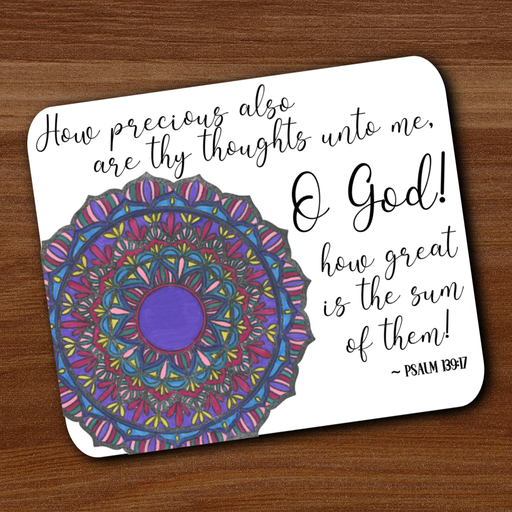 How precious also
are thy thoughts unto me,
O God!
how great
is the sum
of them!
~ PSALM 139:17